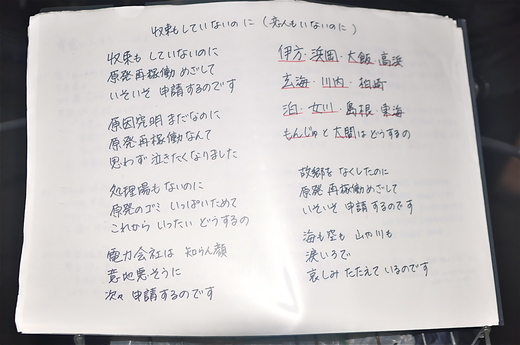 収束もしていないのに（恋人もいないのに）
収束も していないのに
原発再稼働 めざして
いそいそ 申請するのです
原因究明 まだなのに
原発再稼働なんて
思わず 泣きたくなりました
処理場もないのに
原発のゴミ いっぱいためて
これから いったい どうするの
電力会社は 知らん顔
意地悪そうに
次々 申請するのです
伊方・浜岡・大飯・高浜
玄海・川内・柏崎
泊・女川・島根・東海
もんじゅと大間は どうするの
故郷を なくしたのに
原発 再稼働めざして
いそいそ 申請するのです
海も空も 山や川も
涙いろで
哀しみ たたえて いるのです